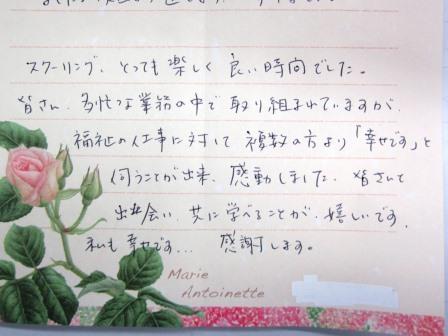 スクーリング、とっても楽しく良い時間でした。
皆さん、多忙な業務の中で取り組まれていますが、
福祉の仕事に対して複数の方より「幸せです」と
伺うことが出来、感動しました。皆さんと
出会い、共に学べることが、嬉しいです。
私も幸せです… 感謝します。
Marie
Antoinette